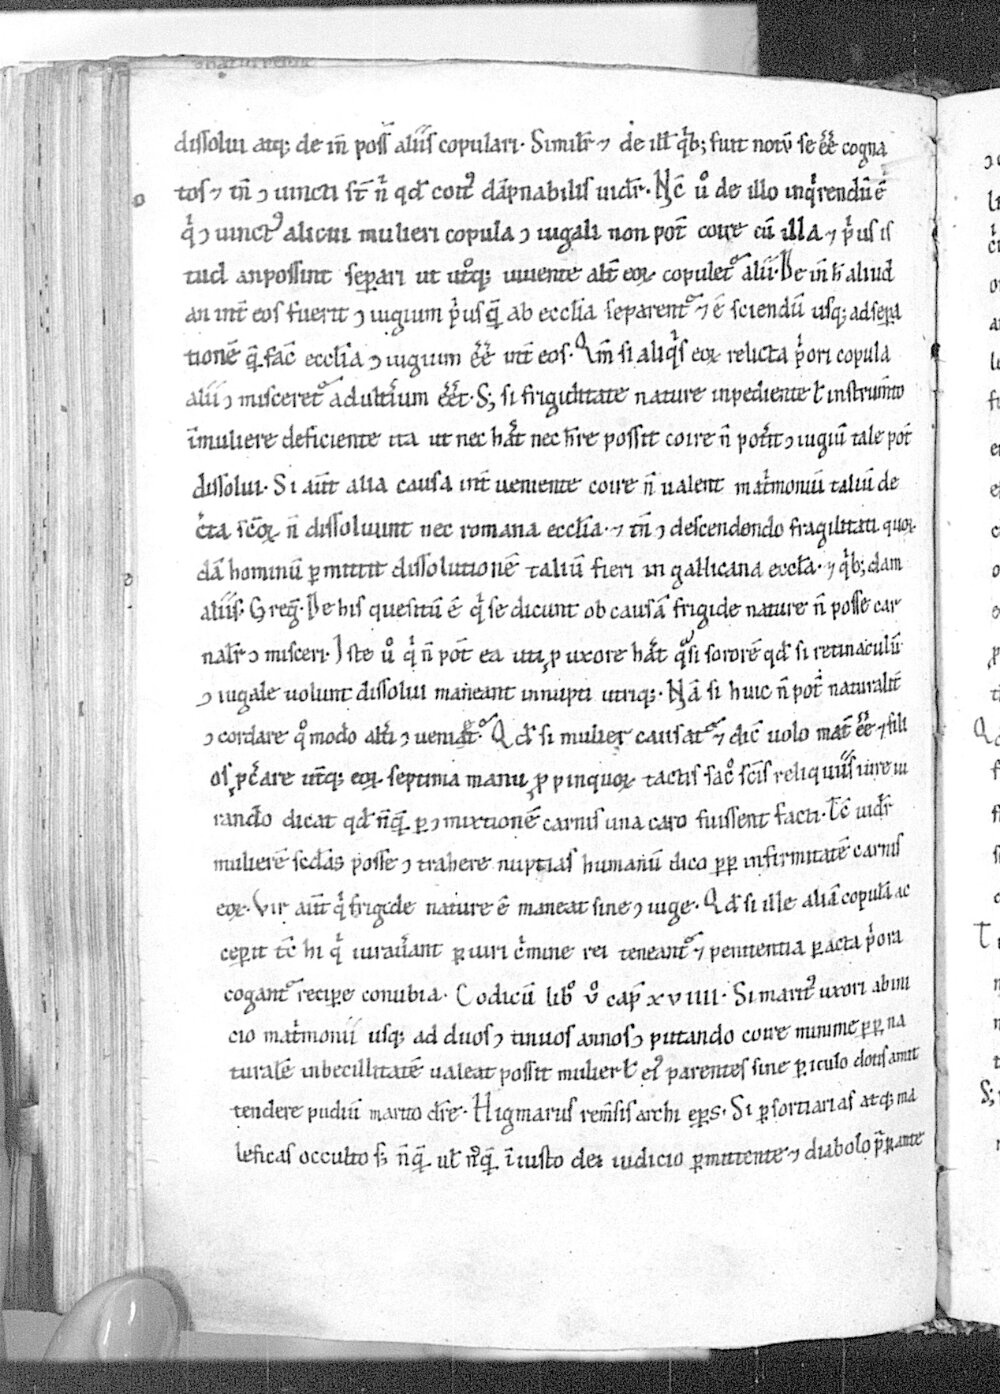 dissolui atq; de iñ poss̃ aliis copulari. Simil̃r ⁊ de ill̃ q̇b; fuit notũ se ẽẽ cogna
tos ⁊ tñ ɔ iuncti st̃ ñ qđ coit᷒ dãpnabilis uidr̃. Nc̃ ů de illo inq̇rendũ ẽ
q̇ ɔ iunct᷒ alicui mulieri copula ɔ iugali non pot̃ coire cũ illa ⁊ ṗus is
tud an possint sep̱ari ut ut̊q; uiuente alt̃ eoꝝ copulet᷑ alii. De iñ h̃ aliud
an int̃ eos fuerit ɔ iugium ṗus q̃ ab ecclĩa separent᷑ ⁊ ẽ sciendũ usq; ad sep̱a
tionẽ q̃ fac̃ ecclĩa ɔ iugium ẽẽ int̃ eos. Qm̃ si aliq̇s eoꝝ relicta ṗori copula
alii ɔ misceret᷑ adult̃ium ẽẽt. S; si frigiditate nature inpediente ł instrum̃to
ĩ muliere deficiente ita ut nec hãt nec h̃re possit coire ñ pot̃it ɔ iugiũ tale pot̃
dissolui. Si aũt alia causa int̃ueniente coire ñ ualent mat̃moniũ taliũ de
c̃ta sc̃oꝝ ñ dissoluunt nec romana ecclĩa. ⁊ tñ ɔ descendendo fragilitati quoꝝ
dã hominũ p̱mittit dissolutionẽ taliũ fieri in gallicana eccla̅. ⁊ q̇b; dam
aliis. Greg̃. De his quesitũ ẽ q̇ se dicunt ob causã frigide nature ñ posse car
nal̃r ɔ misceri. Iste ů q̇ ñ pot̃ ea uti ꝓ uxore hãt q̊si sororẽ qđ si retinaculũ
ɔ iugale uolunt dissolui maneant innupti utriq;. Nã si huic ñ pot̃ naturalit̃
ɔ cordare q̊modo alt̃i ɔ ueniat᷑. Qđ si mulier causat᷑ ⁊ dic̃ uolo mat̃ ẽẽ ⁊ fili
os ꝓc̃are ut̃q; eoꝝ septima manu ꝓpinquoꝝ tactis sac̊scis̃ reliquiis iure iu
rando dicat qđ ñq̃ p̱ ɔ mixtionẽ carnis una caro fuissent facti. Tc̃ uidr̃
mulierẽ sc̃das posse ɔ trahere nuptias humanũ dico p̱p̱ infirmitatẽ carnis
eoꝝ. Vir aũt q̇ frigide nature ẽ maneat sine ɔ iuge. Qđ si ille aliã copulã ac
cep̱it tc̃ hi q̇ iurauãnt p̱iuri c̃mine rei teneant᷑ ⁊ penitentia p̱acta ṗora
cogant᷑ recip̱e conubia. Codicũ lib̊ v̊ cap̃ xviiii. Si marit᷒ uxori ab ini
cio mat̃monii usq; ad duos ɔ tinuos annos ɔ putando coire minime p̱p̱ na
turalẽ inbecillitatẽ ualeat possit mulier ł ei᷒ parentes sine p̱iculo dotis amit
tendere pudiũ marito dr̃e. Higmarus rem̃sis archi ep̱s. Si p̱ sortiarias atq; ma
leficas occulto s; ñq̃ uł nůq̃ ĩiusto dei iudicio p̱mittente ⁊ diabolo p̃p̱ante